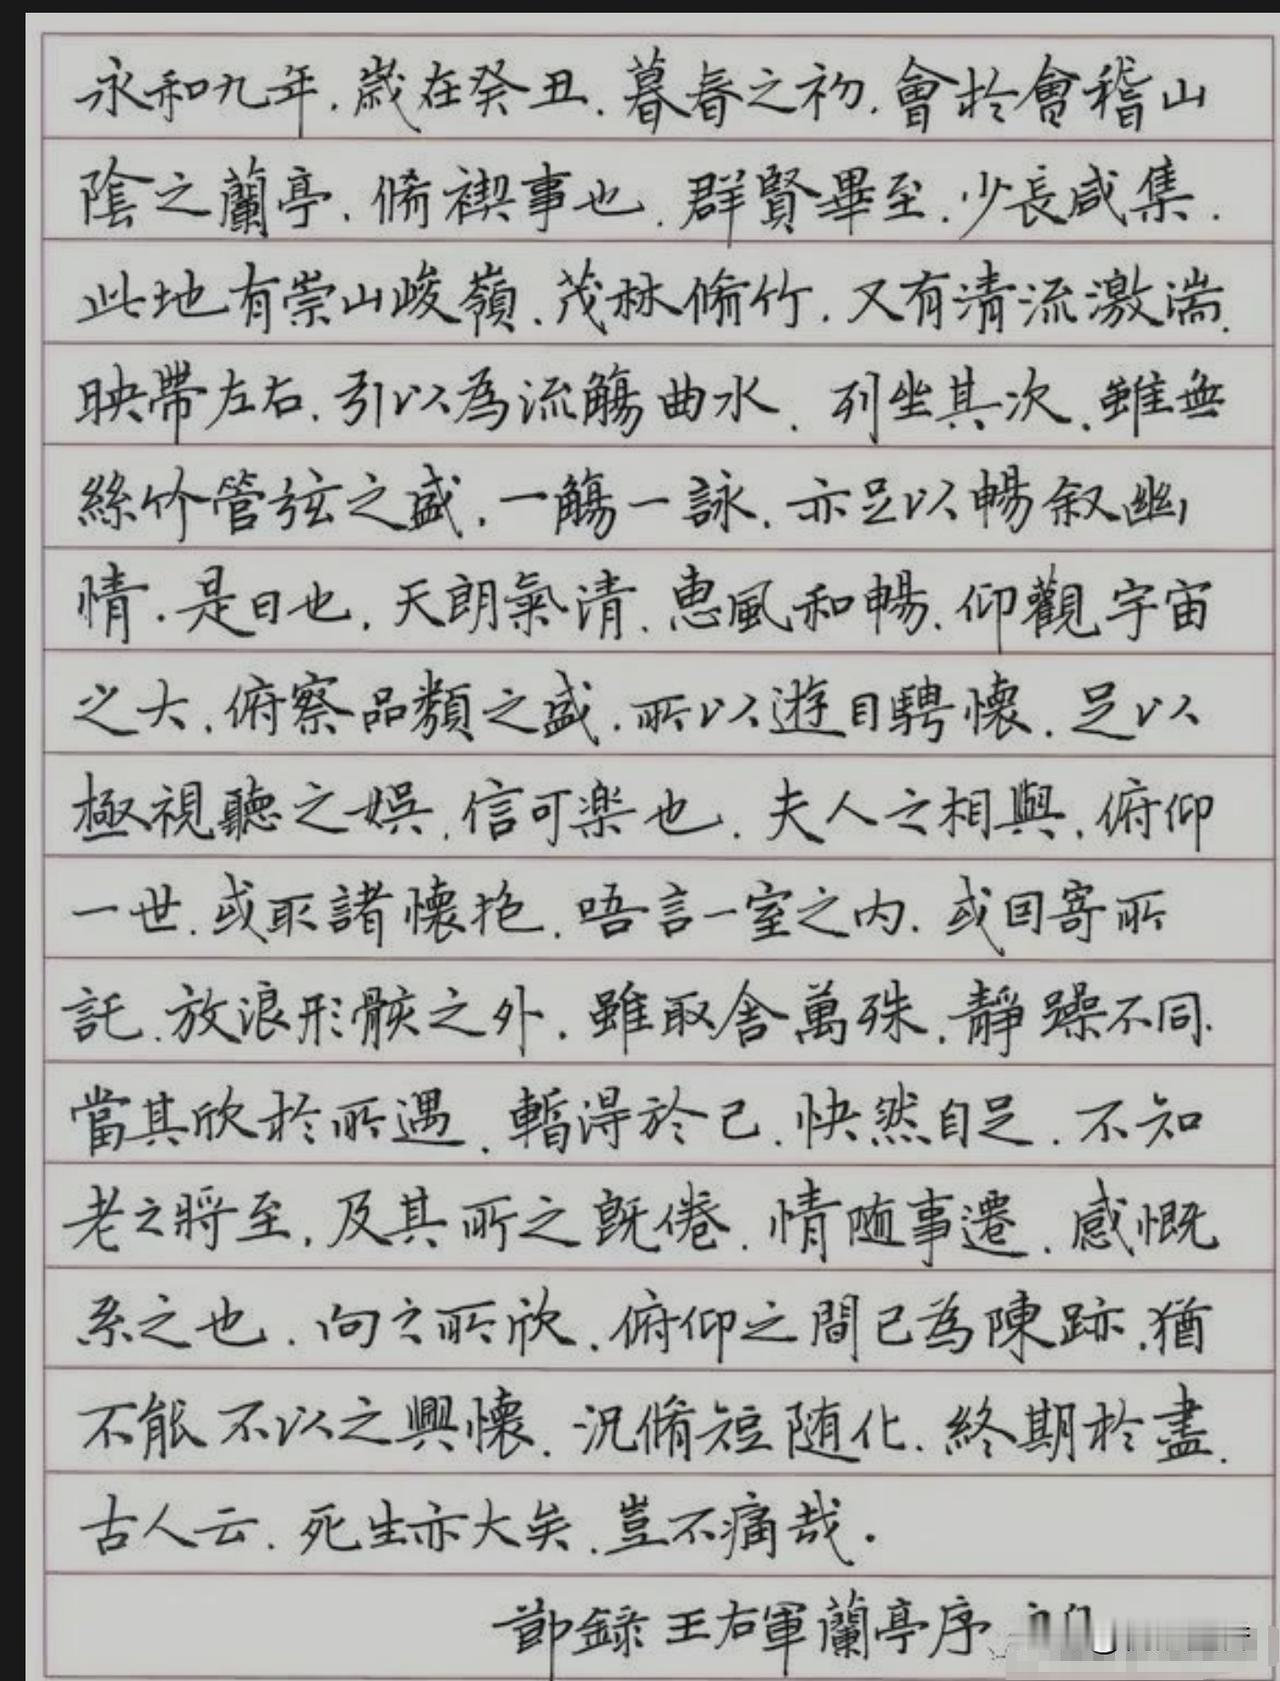 永和九年.歲在癸丑.暮春之初.會於會稽山
陰之蘭亭.脩禊事也.群賢畢至.少長咸集.
此地有崇山峻嶺.茂林脩竹.又有清流激湍.
映帶左右.引以為流觴曲水.列坐其次.雖無
絲竹管弦之盛.一觴一詠.亦足以暢叙幽
情.是日也.天朗氣清.惠風和暢.仰觀宇宙
之大.俯察品類之盛.所以遊目騁懷.足以
極視聽之娛.信可楽也.夫人之相與.俯仰
一世.或取諸懷抱.唔言一室之内.或因寄所
託.放浪形骸之外.雖取舍萬殊.靜躁不同.
當其欣於所遇.暫得於己.快然自足.不知
老之將至.及其所之既倦.情随事遷.感慨
系之也.向之所欣.俯仰之間已為陳跡.猶
不能不以之興懷.況脩短随化.終期於盡.
古人云.死生亦大矣.豈不痛哉.
節錄王右軍蘭亭序